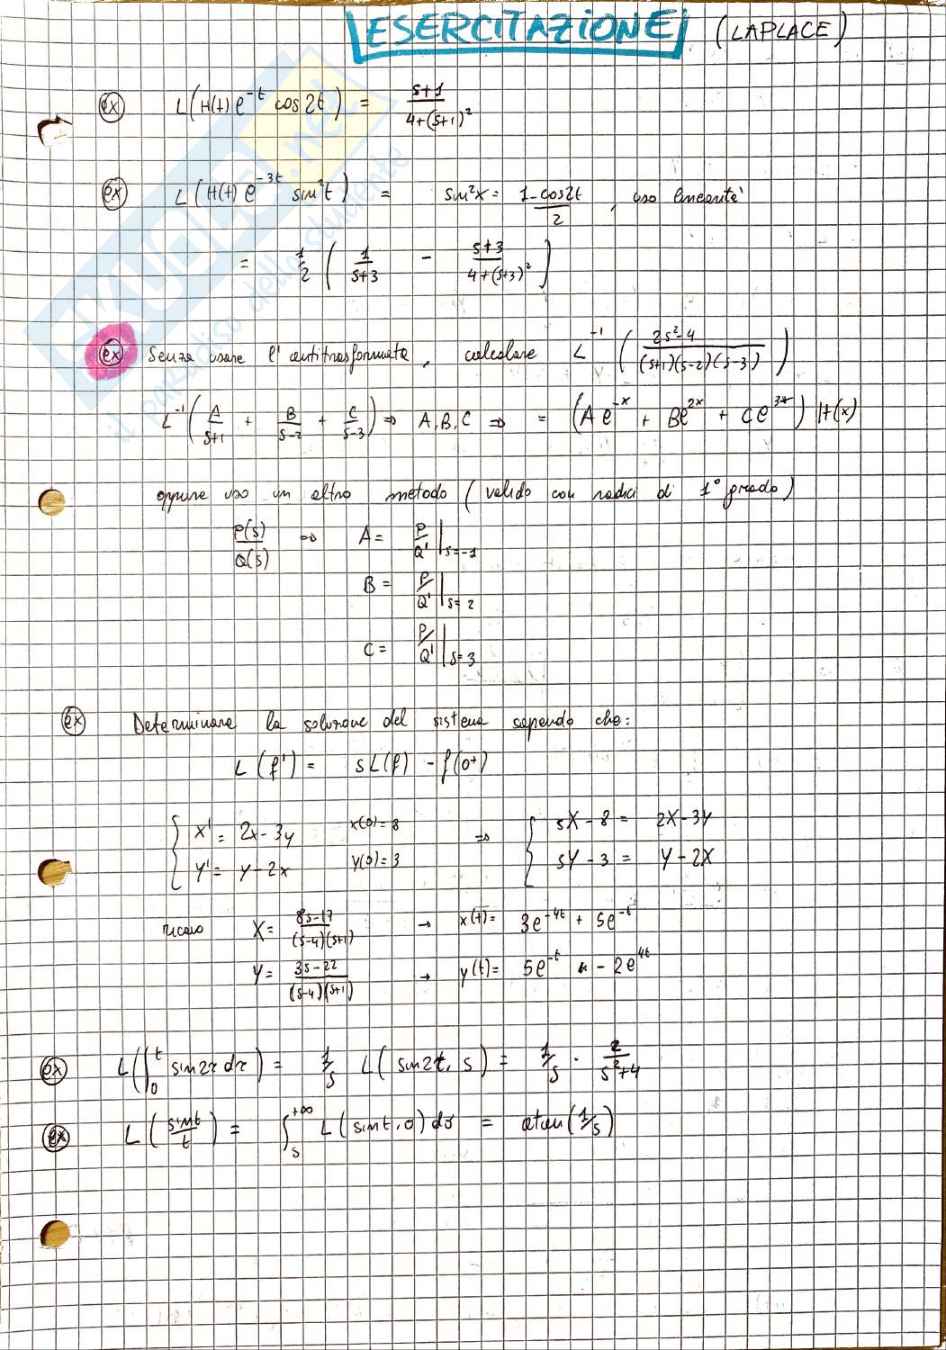 ESERCITAZIONE (LAPLACE)
ex L(H(t) e^{-t} cos2t) = \frac{s+1}{4+(s+1)^2}
ex L(H(t) e^{-3t} sin^2t) = sin^2x = \frac{1-cos2t}{2}, uso linearità
= \frac{1}{2} ( \frac{1}{s+3} - \frac{s+3}{4+(s+3)^2} )
ex Senza usare l'antitrasformata, calcolare L^{-1} ( \frac{2s^2-4}{(s+1)(s-2)(s-3)} )
L^{-1} ( \frac{A}{s+1} + \frac{B}{s-2} + \frac{C}{s-3} ) ⇒ A, B, C ⇒ = (A e^{-x} + B e^{2x} + C e^{3x}) H(x)
oppure uso un altro metodo (valido con radici di 1° grado)
\frac{P(s)}{Q(s)} ⇒ A = \frac{P}{Q'} |_{s=-1}
B = \frac{P}{Q'} |_{s=2}
C = \frac{P}{Q'} |_{s=3}
ex Determinare la soluzione del sistema sapendo che:
L(f') = sL(f) - f(0^+)
{ x' = 2x-3y x(0)=8 ⇒ { sX-8 = 2X-3Y
y' = y-2x y(0)=3 sY-3 = Y-2X
ricavo X = \frac{8s-17}{(s-4)(s+1)} → x(t) = 3e^{-4t} + 5e^{-t}
Y = \frac{3s-22}{(s-4)(s+1)} → y(t) = 5e^{-t} - 2e^{4t}
ex L( ∫_0^t sin2τ dτ ) = \frac{1}{s} L(sin2t, s) = \frac{1}{s} · \frac{2}{s^2+4}
ex L( \frac{sint}{t} ) = ∫_s^{+∞} L(sint, σ) dσ = atan(1/s)
SKUOLA.net
il paradiso dello studente